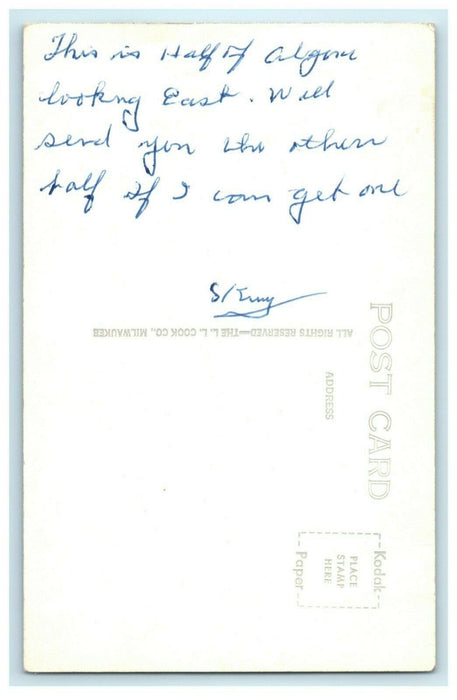 This is Half of Algoma
looking East. Will
send you the other
half if I can get one
ALL RIGHTS RESERVED—THE L. L. COOK CO., MILWAUKEE
POST CARD
ADDRESS
Kodak
PLACE
STAMP
HERE
Paper